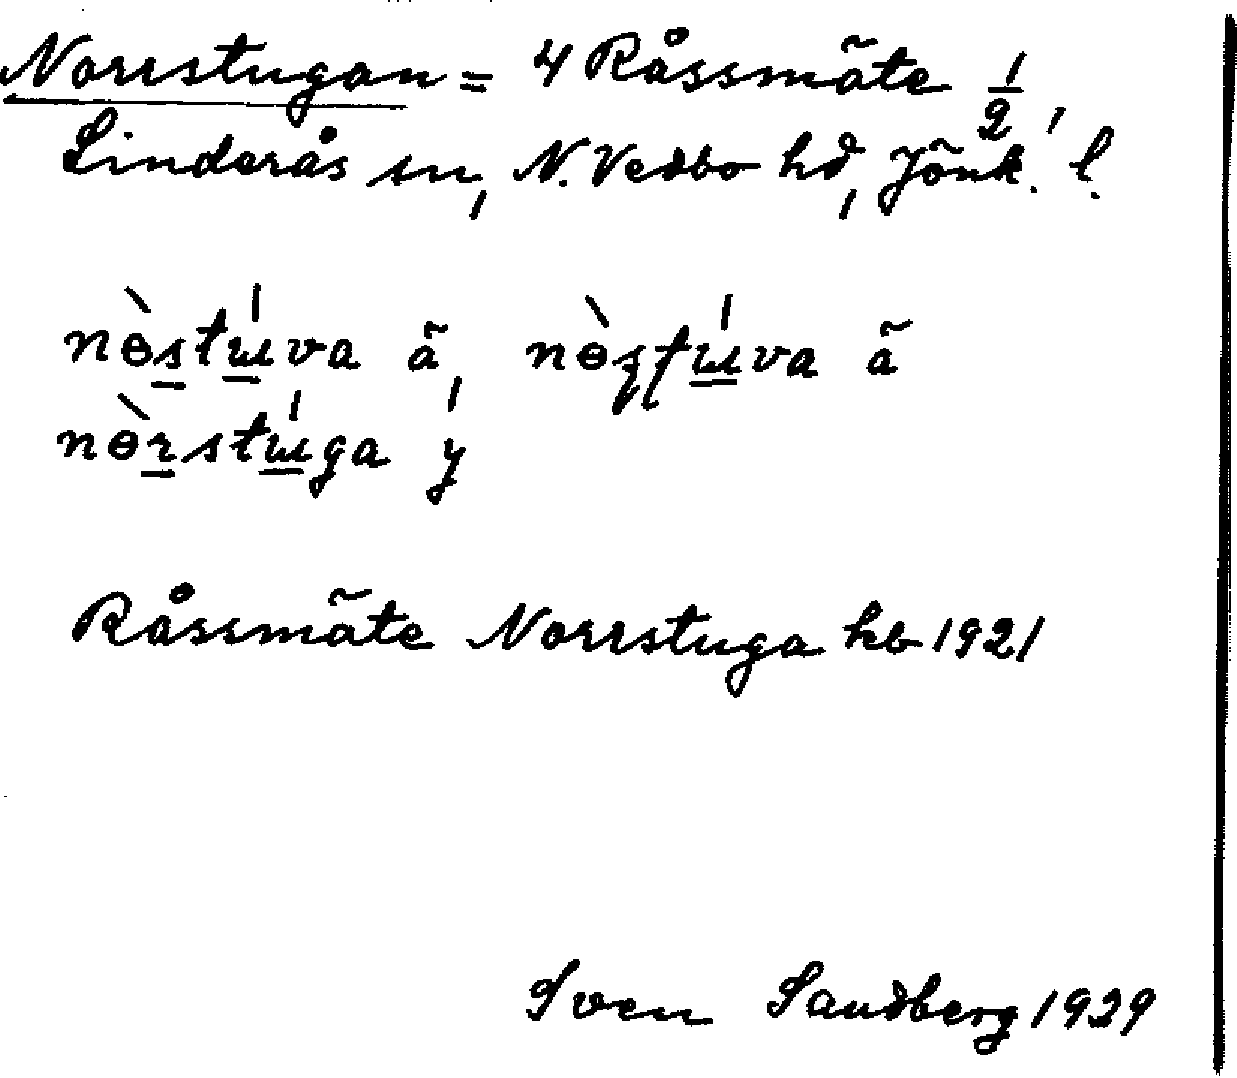 Norrstugan = 4 Råssmäte 1/2,
Linderås sn, N. Vedbo hd, Jönk. l.
nɵ̀stɯ́va ã, nɵ̀ʂʈɯ́va ã
nɵ̀rstɯ́ga ý
Råssmäte Norrstuga hb 1921
Sven Sandberg 1929